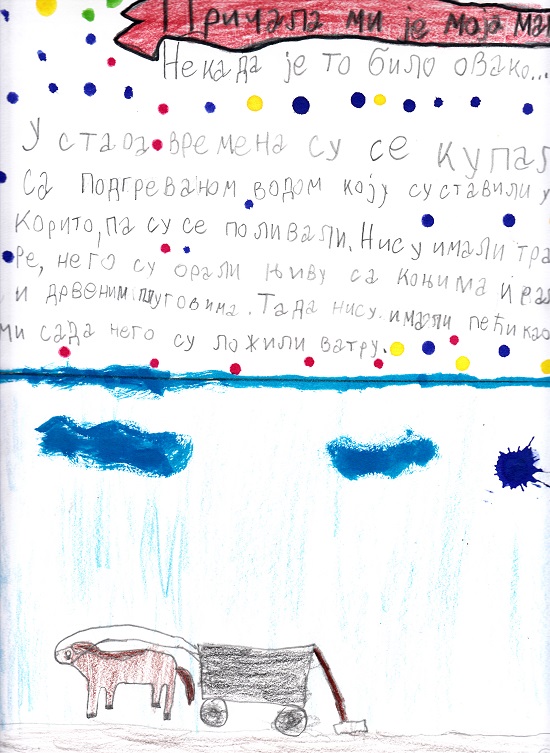 Причала ми је моја ма
Некада је то било овако...
У стара времена су се купал
са подгреваном водом коју су ставили у
корито, па су се поливали. Нису имали тра
ре, него су орали њиву са коњима и рал
и дрвеним плуговима. Тада нису имали пећи као
ми сада него су ложили ватру.